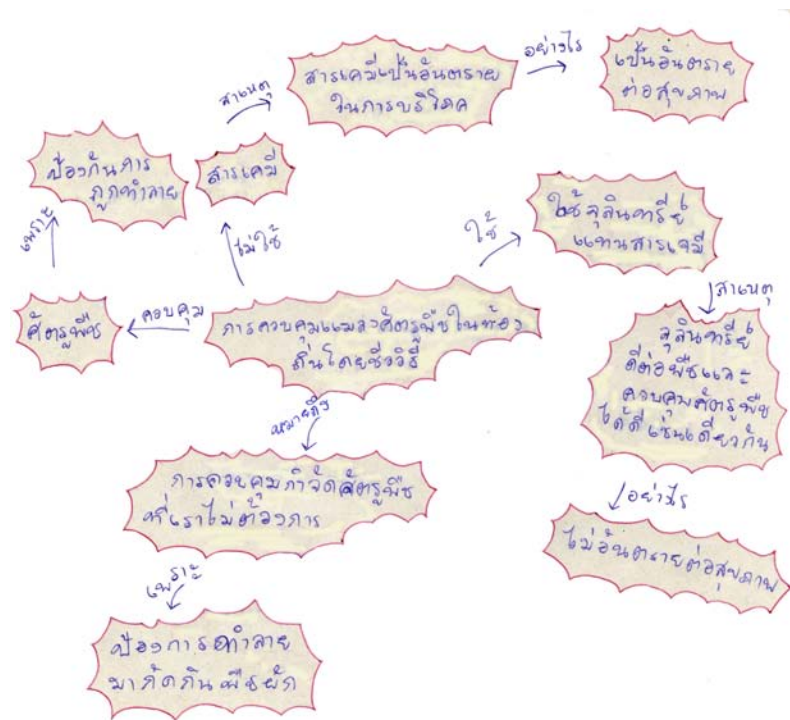 สารเคมีเป็นอันตราย
ในการบริโภค
อย่างไร
เป็นอันตราย
ต่อสุขภาพ
สาเหตุ
ป้องกันการ
ถูกทำลาย
สารเคมี
เพราะ
ไม่ใช้
ใช้
ใช้จุลินทรีย์
แทนสารเคมี
ศัตรูพืช
ควบคุม
การควบคุมแมลงศัตรูพืชในท้อง
ถิ่นโดยชีววิธี
สาเหตุ
จุลินทรีย์
ดีต่อพืชและ
ควบคุมศัตรูพืช
ได้ดีเช่นเดียวกัน
หมายถึง
การควบคุมกำจัดศัตรูพืช
ที่เราไม่ต้องการ
อย่างไร
ไม่อันตรายต่อสุขภาพ
เพราะ
ป้องการทำลาย
มากัดกินพืชผัก